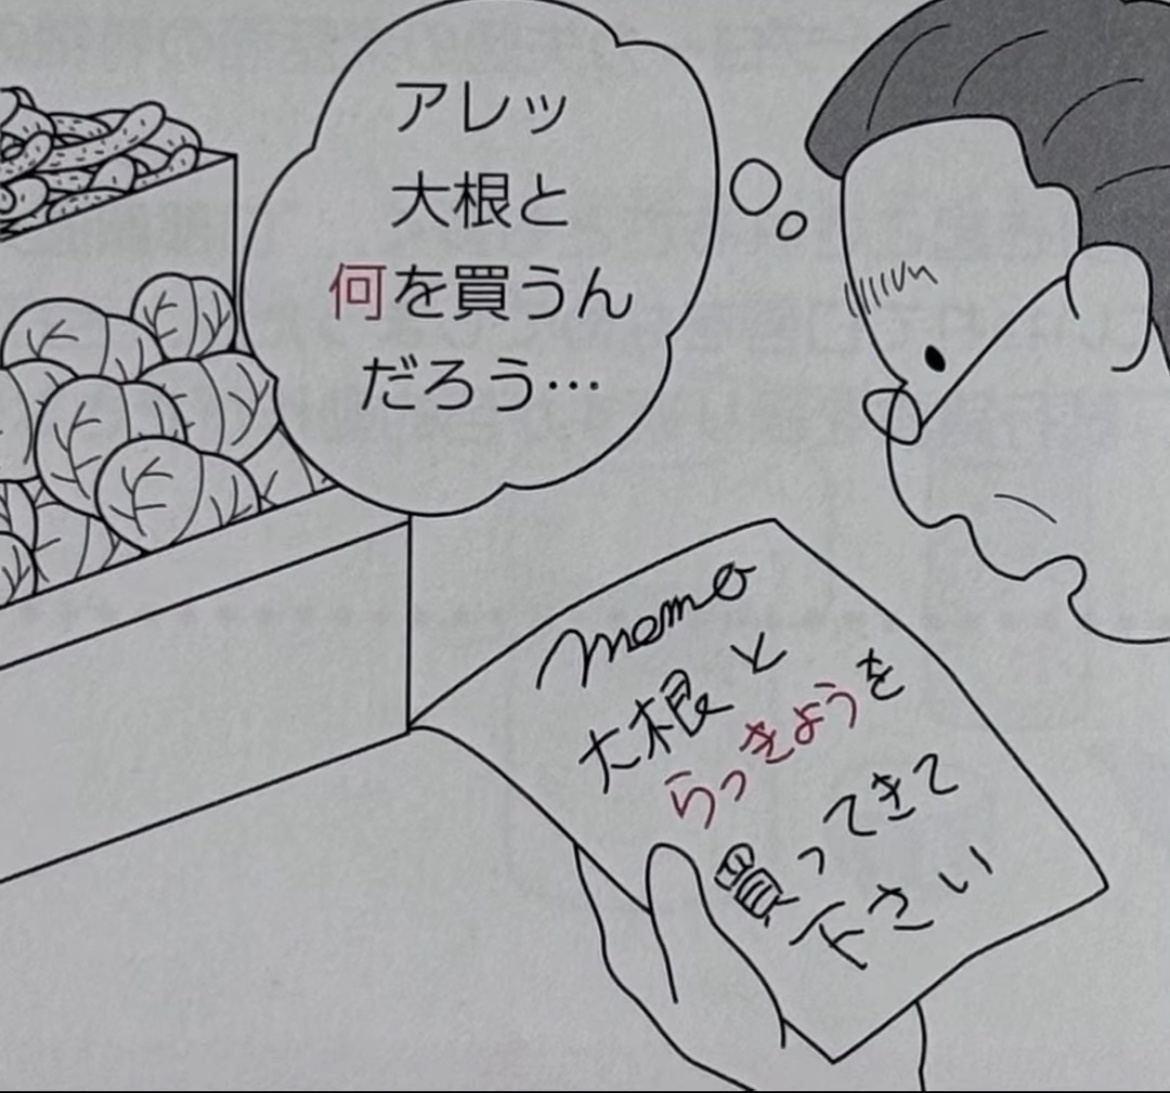 アレッ
大根と
何を買うん
だろう…
memo
大根と
らっきょうを
買ってきて
下さい